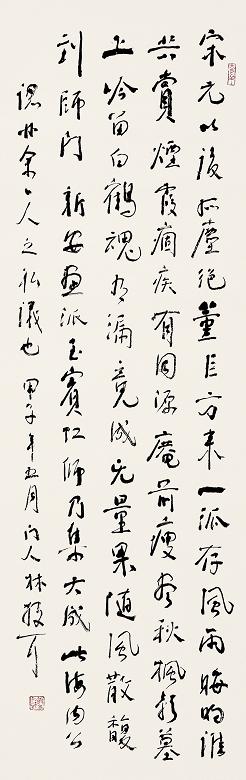 宋元以後塵絕董巨方来一派存風雨晦明誰
共賞煙霞痼疾有同源庵前瘦盡秋楓影墓
上吟留白鶴魂有漏竟成无量果随風散馥
到師門 新安畫派至賓虹師乃集大成此海内公
認非余一人之私議也 甲子年五月 門人林散耳